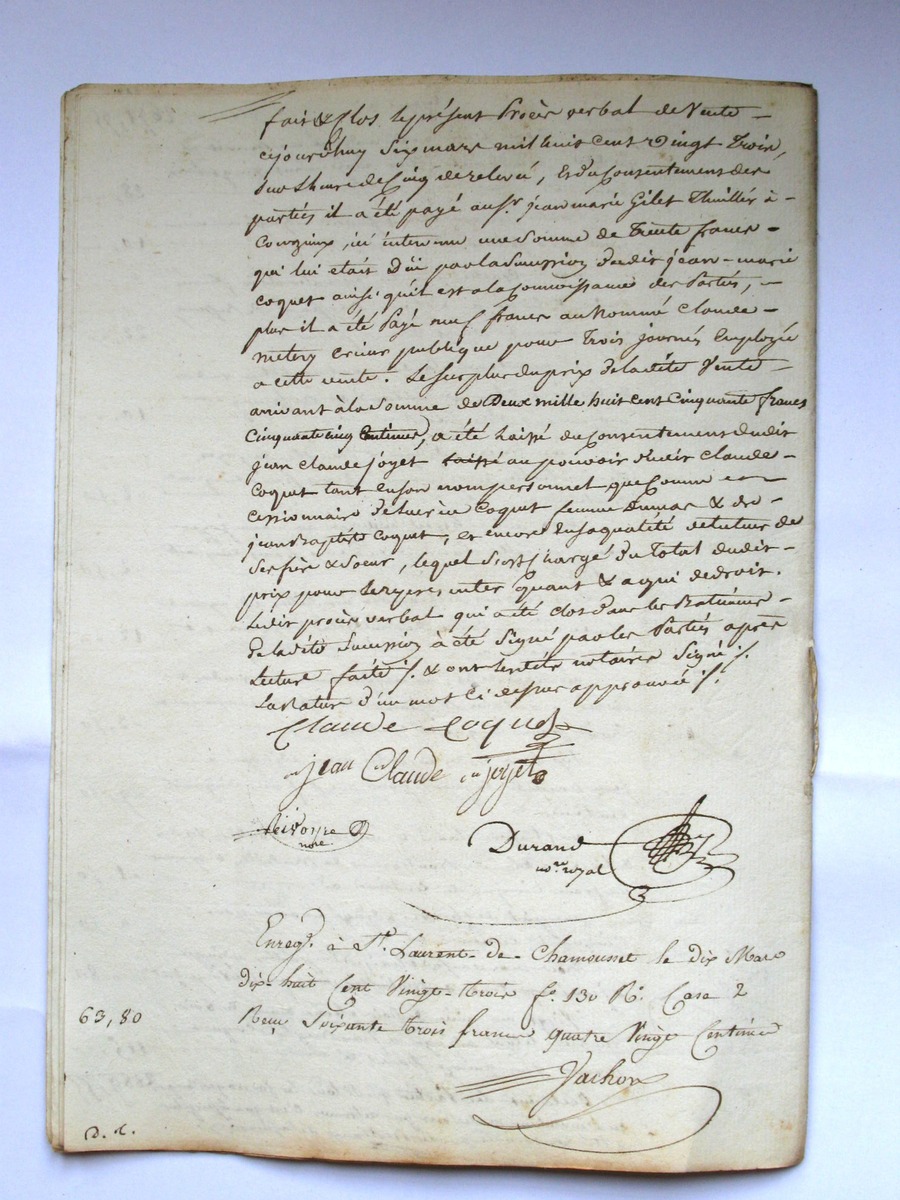 fait & Clos le présent Procès verbal de Vente
cejourd'huy Six mars mil huit cent vingt Trois,
sur L'heure de Cinq de relevé, & du Consentement des
parties il a été payé au Sr. jean marie Gilet Thuillier à
Courzieux, ici intervenu une Somme de Trente francs
qui lui etait Dûe par la Succession dudit jean-marie
coquet ainsi qu'il est a la Connoissance des Parties,
plus il a été Payé neuf francs au Nommé Claude
metery crieur publique pour Trois journés Employée
a cette vente. Le Surplus du prix de la dite Vente
arrivant à la Somme de Deux mille huit cent Cinquante francs
Cinquante cinq Centimes, a été laissé du Consentement dudit
jean claude joyet laissé au pouvoir dudit Claude
coquet tant en son nom personnel que Comme
cessionnaire de Coquet femme Dumas & de
jean Baptiste Coquet, et encore En sa qualité de tuteur de
Ses frère & Soeur, lequel S'est Chargé du Total dudit
prix pour le représenter quant & a qui de droit.
Ledit procès verbal qui a été clos dans les Batiments
de la dite Succession à été Signé par les Parties après
Lecture faite /. & ont lesdits notaires Signé /.
La Rature d'un mot Ci dessus approuvée /.
Claude Coquet
jean Claude joyet
nore.
Durand
nore. royal
Enregé. à St. Laurent-de-Chamousset le dix Mars
dix-huit Cent Vingt-trois fo. 130 Ro. Case 2
63,80
Reçu Soixante trois francs quatre Vingt Centimes
Vachon
D. C.